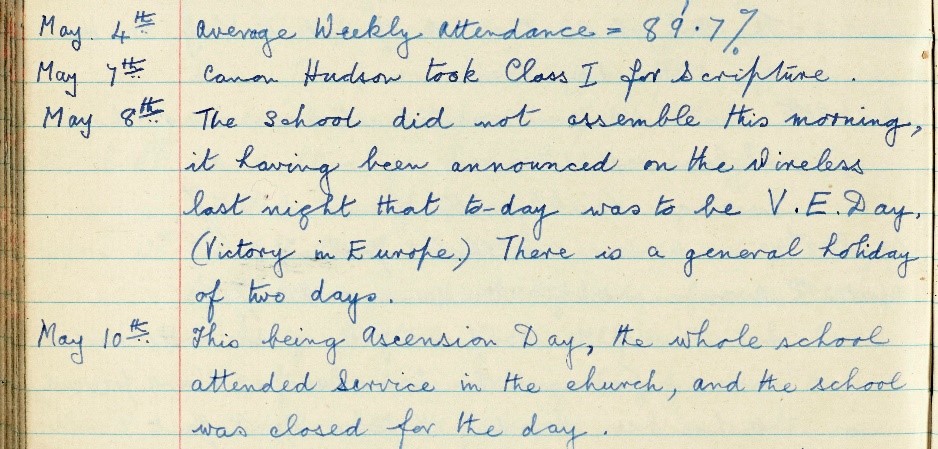 May. 4th Average Weekly Attendance = 89.7%
May 7th Canon Hudson took Class I for Scripture.
May 8th The School did not assemble this morning,
it having been announced on the Wireless
last night that to-day was to be V.E. Day.
(Victory in Europe.) There is a general holiday
of two days.
May 10th This being Ascension Day, the whole school
attended Service in the church, and the school
was closed for the day.